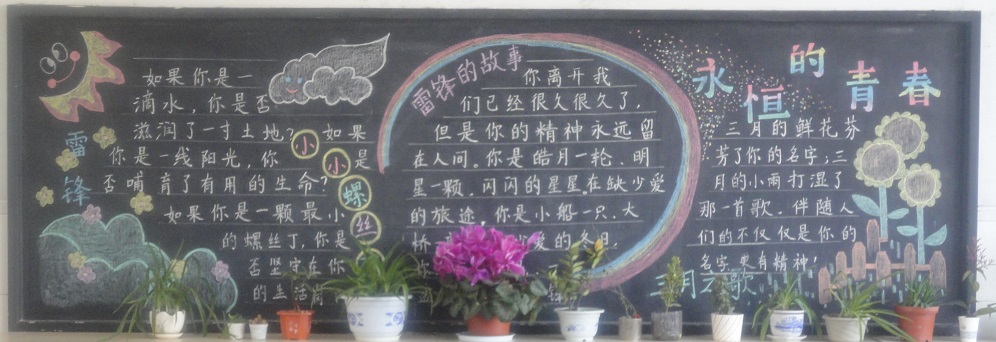 雷锋
如果你是一
滴水，你是否
滋润了一寸土地？如果
你是一线阳光，你是
否哺育了有用的生命？
如果你是一颗最小
的螺丝丁，你是
否坚守在你
的生活岗
小小螺丝
雷锋的故事
你离开我
们已经很久很久了，
但是你的精神永远留
在人间。你是皓月一轮、明
星一颗，闪闪的星星，在缺少爱
的旅途，你是小船一只、大
桥
爱的冬日，
永恒的青春
三月的鲜花芬
芳了你的名字；三
月的小雨打湿了
那一首歌。伴随人
们的不仅仅是你的
名字更有精神！
三月之歌